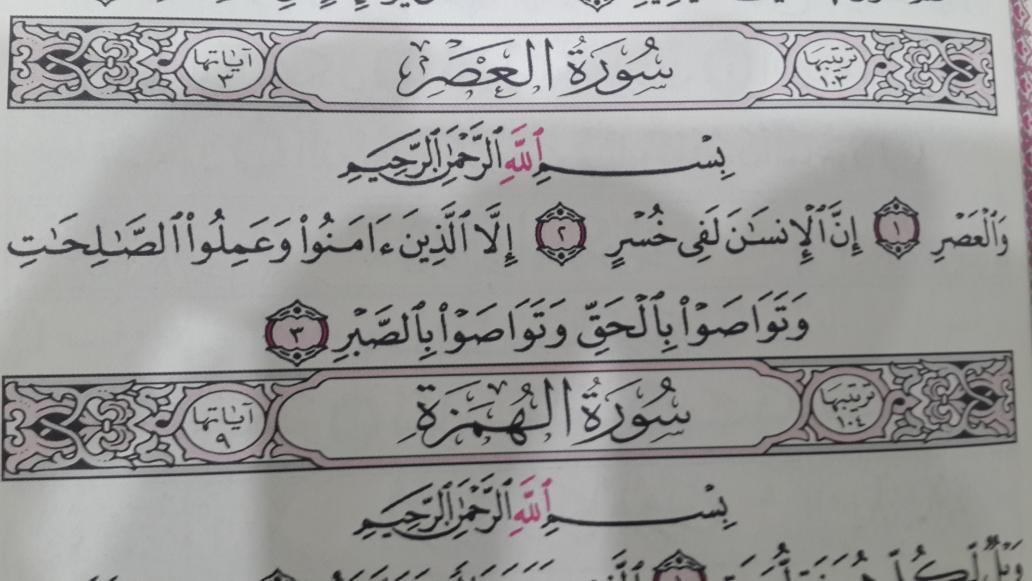 سُورَةُ العَصْرِ ترتيبها ١٠٣ آياتها ٣
بِسْمِ ٱللَّهِ ٱلرَّحْمَٰنِ ٱلرَّحِيمِ
وَٱلْعَصْرِ ١ إِنَّ ٱلْإِنسَٰنَ لَفِى خُسْرٍ ٢ إِلَّا ٱلَّذِينَ ءَامَنُوا۟ وَعَمِلُوا۟ ٱلصَّٰلِحَٰتِ
وَتَوَاصَوْا۟ بِٱلْحَقِّ وَتَوَاصَوْا۟ بِٱلصَّبْرِ ٣
سُورَةُ الهُمَزَةِ ترتيبها ١٠٤ آياتها ٩
بِسْمِ ٱللَّهِ ٱلرَّحْمَٰنِ ٱلرَّحِيمِ
وَيْلٌ لِّكُلِّ